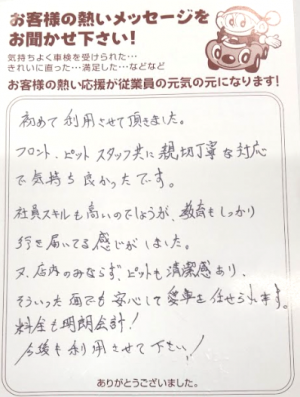 お客様の熱いメッセージを
お聞かせ下さい!
気持ちよく車検を受けられた…
きれいに直った…満足した…などなど
お客様の熱い応援が従業員の元気の元になります!
初めて利用させて頂きました。
フロント、ピットスタッフ共に親切丁寧な対応
で気持ち良かったです。
社員スキルも高いのでしょうが、教育もしっかり
行き届いてる感じがしました。
又、店内のみならず、ピットも清潔感あり、
そういった面でも安心して愛車を任せられます。
料金も明朗会計!
今後も利用させて下さい!
ありがとうございました。